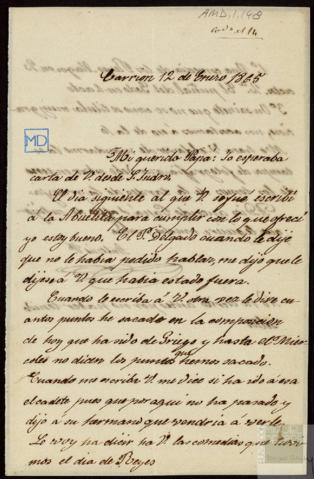 AMD.I.148
MD
Carrion 12 de Enero 1865
Mi querido Papa: Yo esperaba
carta de V. desde S. Isidro.
El dia siguiente al que V. se fue escribi
á la Abuelita para cumplir con lo que ofreci
yo estoy bueno. El P. Delgado cuando le dije
que no le habia podido hablar, me dijo que le
dijese á V. que habia estado fuera.
Cuando le escriba á V. otra vez le dire cu-
antos puntos he sacado en la composicion
de hoy que ha sido de Griego y hasta el Mier-
coles no dicen los puntos que hemos sacado.
Cuando me escriba V. me dice si ha ido á esa
el cadete pues que por aqui no ha pasado y
dijo á su hermano que vendria á verle
Le voy ha dicir ha V. las comedias que tuvi-
mos el dia de Reyes